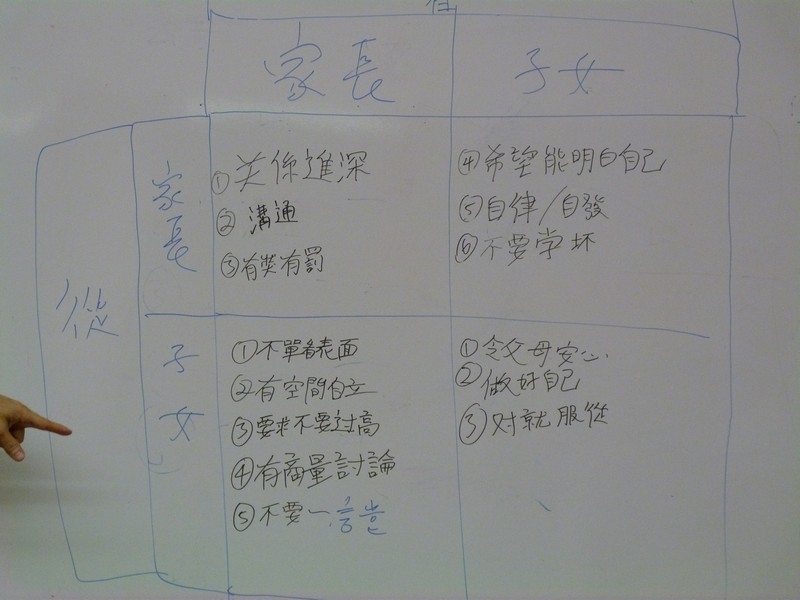 在
家長
子女
從
家長
①关係進深
②溝通
③有奖有罰
④希望能明白自己
⑤自律/自發
⑥不要学坏
子女
①不單看表面
②有空間自立
③要求不要过高
④有商量討論
⑤不要一言堂
①令父母安心
②做好自己
③对就服從